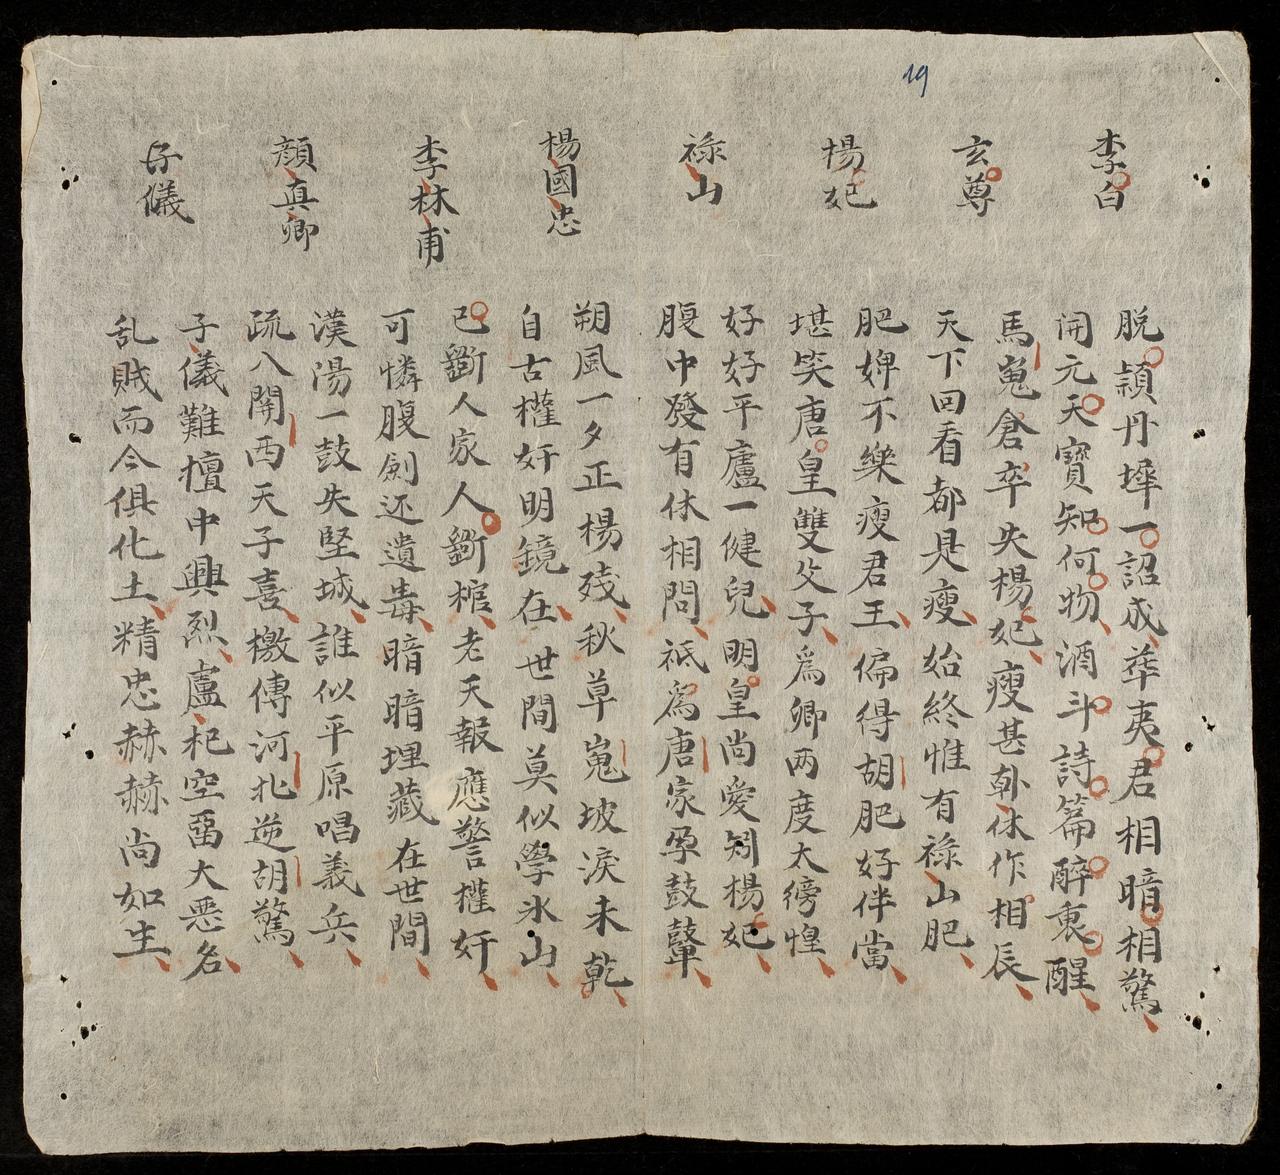 19
李白
脫穎丹墀一詔成華夷君相暗相驚
開元天寶知何物酒斗詩篇醉裏醒
玄尊
馬嵬倉卒失楊妃瘦甚休作相辰
天下回看都是瘦始終惟有祿山肥
楊妃
肥婢不樂瘦君王偏得胡肥好伴當
堪笑唐皇雙父子為卿兩度太徬惶
祿山
好好平廬一健兒明皇尚愛矧楊妃
腹中發有休相問祗為唐家孕鼓鼙
楊國忠
朔風一夕正楊殘秋草嵬坡淚未乾
自古權奸明鏡在世間莫似學氷山
李林甫
已斷人家人斷棺老天報應警權奸
可憐腹劍还遺毒暗暗埋藏在世間
顏真卿
漢陽一鼓失堅城誰似平原唱義兵
疏入關西天子喜檄傳河北逆胡驚
子儀
子儀難擅中興烈盧杞空畱大惡名
乱賊而今俱化土精忠赫赫尚如生